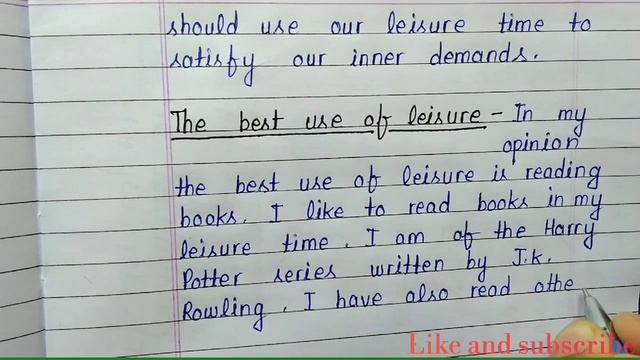 should use our leisure time to
satisfy our inner demands.
The best use of leisure - In my
opinion
the best use of leisure is reading
books. I like to read books in my
leisure time. I am of the Harry
Potter series written by J.k.
Rowling. I have also read othe
Like and subscribe